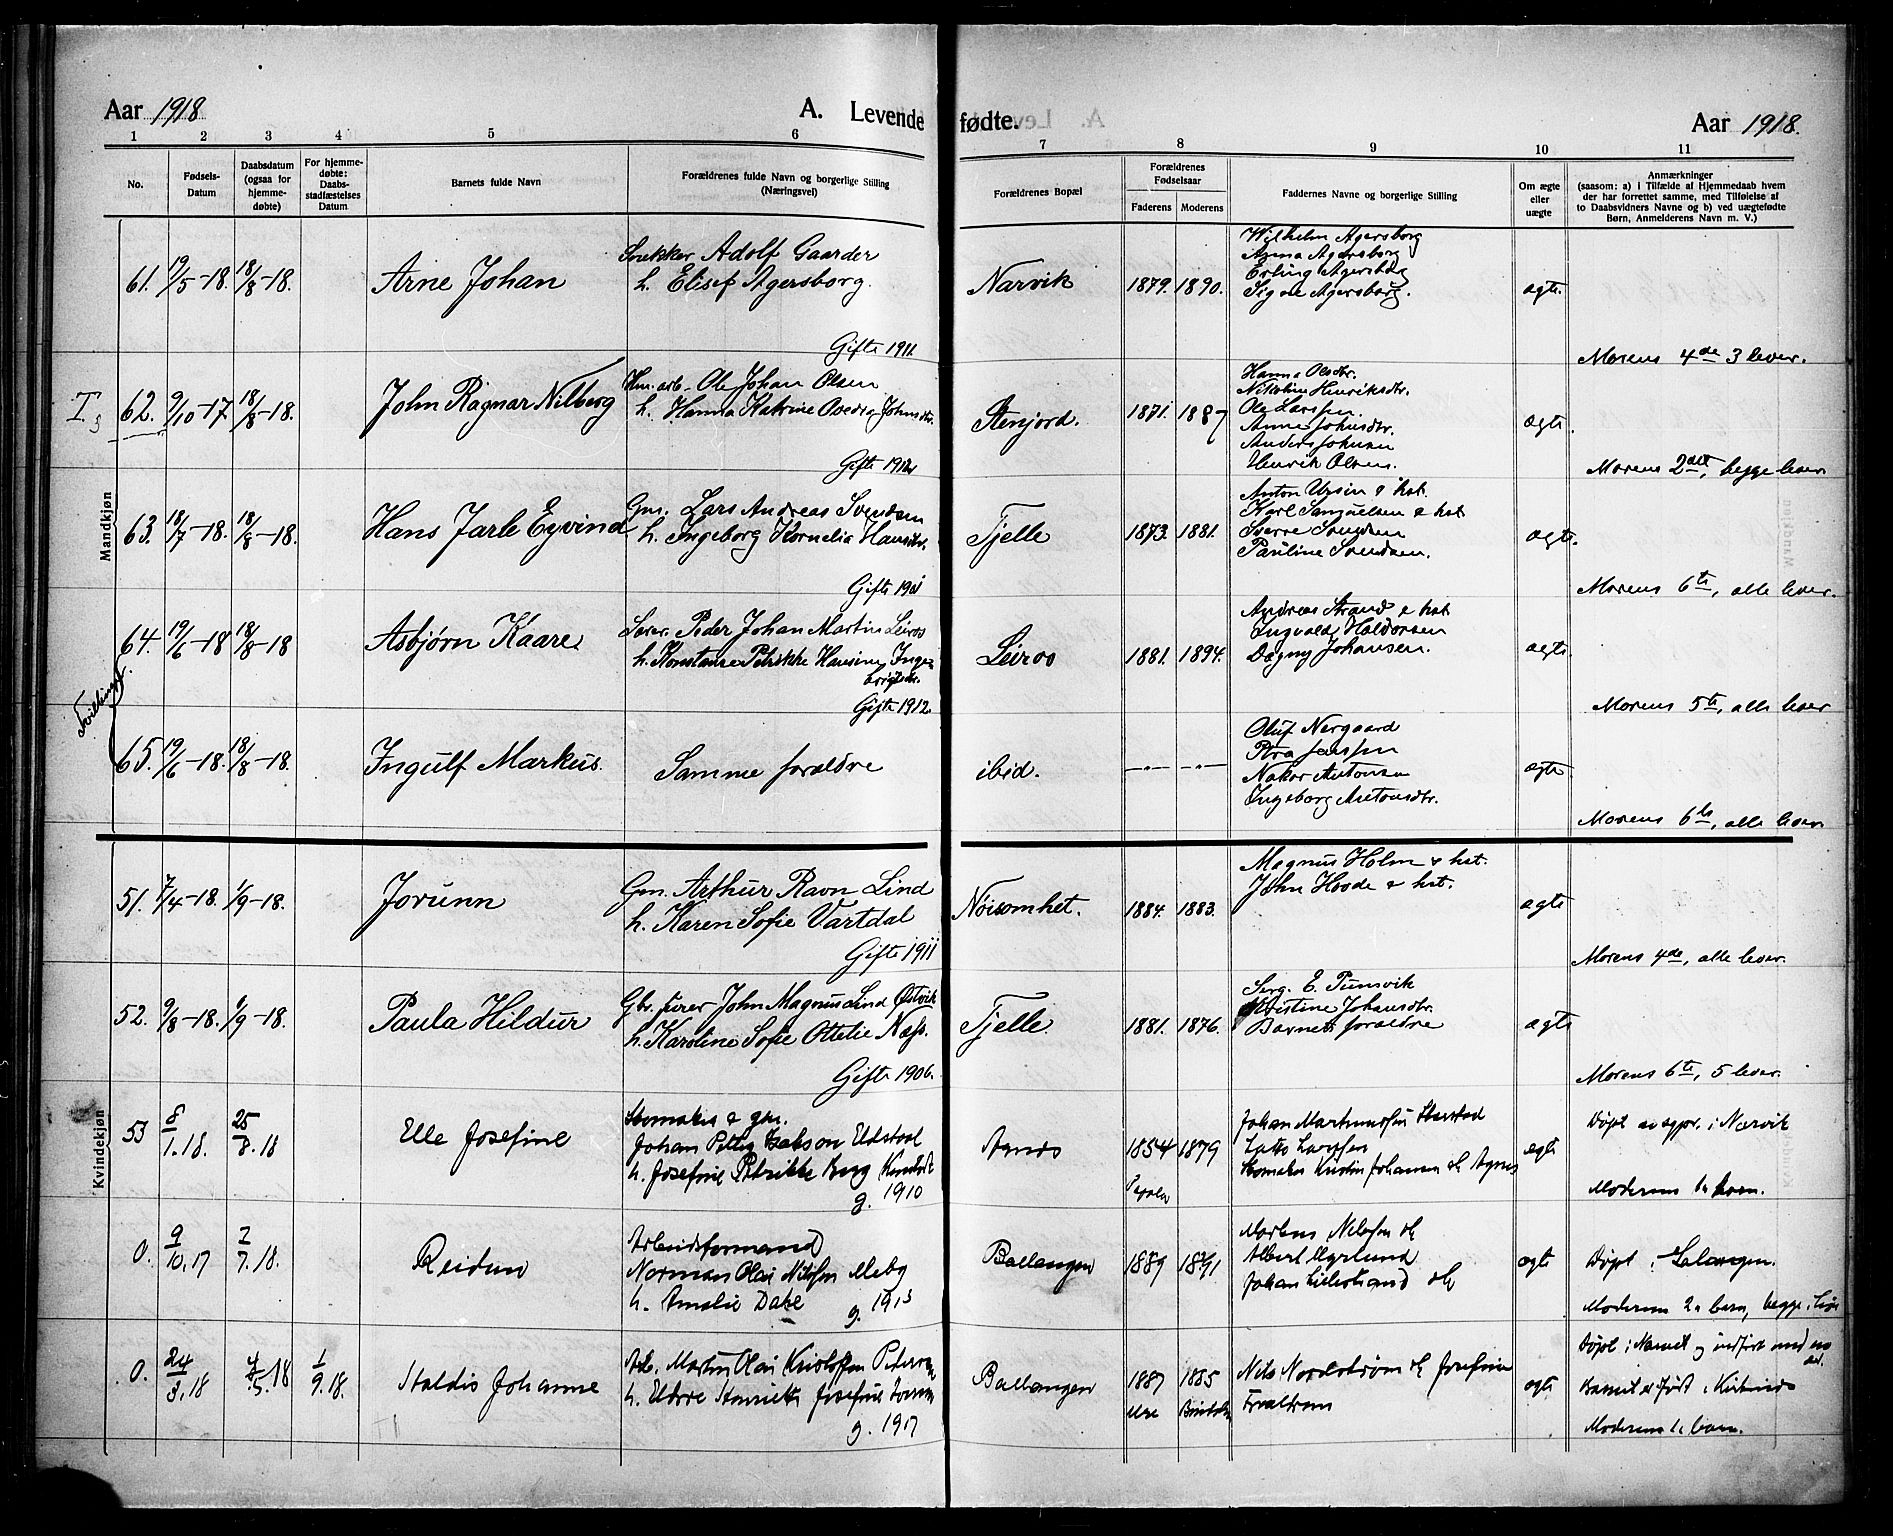 Aar 1918
A. Levende fødte.
Aar 1918.
1 2 3 4 5 6 7 8 9 10 11
No.
Fødsels-
Datum
Daabsdatum
(ogsaa for
hjemme-
døbte)
For hjemme-
døbte:
Daabs-
stadfæstelses
Datum
Barnets fulde Navn
Forældrenes fulde Navn og borgerlige Stilling
(Næringsvei)
Forældrenes Bopæl
Forældrenes
Fødselsaar
Faderens Moderens
Faddernes Navne og borgerlige Stilling
Om ægte
eller
uægte
Anmærkninger
(saasom: a) i Tilfælde af Hjemmedaab hvem
der har forrettet samme, med Tilføielse af
to Daabsvidners Navne og b) ved uægtefødte
Børn, Anmelderens Navn m. V.)
Mandkjøn
61. 19/5-18. 18/8-18. Arne Johan
Snekker Adolf Gaarder
h. Elisef Agersborg.
Gifte 1911.
Narvik 1879. 1890.
Wilhelm Agersborg
Agersborg
Erling Agersborg
Signe Agersborg.
ægte.
Morens 4de 3 lever.
62. 9/10-17 18/8-18. John Ragnar Nilberg
Ole Johan Olsen
h. Hanna Katrine Johnsdtr.
Gifte 1912
Stenjord. 1871. 1887
Hanna Olsdtr.
Henriksdtr.
Ole Larssen.
Anna Johnsdtr.
Anders Johnsen
Henrik Olsen.
ægte.
Morens 2det, begge lever
63. 18/7-18. 18/8-18. Hans Jarle Eyvind
Gm. Lars Andreas Svendsen
h. Ingeborg Kornelia Hansdtr.
Gifte 1901
Tjelle 1873. 1881.
Anton Ursin & hst.
Karl Samuelsen & hst
Sverre Svendsen
Pauline Svendsen.
ægte.
Morens 6te, alle lever.
Tvillinger.
64. 19/6-18 18/8-18 Asbjørn Kaare
Peder Johan Martin Leiros
h. Konstanse Petrikke Hansine Inge-
brigtsdtr.
Gifte 1912.
Leiros 1881. 1894.
Andreas Strand & hst
Ingvald Haldorsen
Dagny Johansen.
ægte
Morens 5te, alle lever
65. 19/6-18. 18/8-18. Ingulf Markus.
Samme forældre
ibid.
Oluf Nergaard
Petra Jenssen
Antonsen
Ingeborg Antonsdtr.
ægte
Morens 6te, alle lever
Kvindekjøn
51. 7/4-18. 1/9-18. Jorunn
Gm. Arthur Ravn Lind
h. Karen Sofie Vartdal
Gifte 1911
Nøisomhet. 1884. 1883.
Magnus Holm & hst.
John Hovde & hst.
ægte
Morens 4de, alle lever.
52. 9/8-18. 1/9-18. Paula Hildur
Gbr. furer John Magnus Lind Østvik
h. Karoline Sofie Ottelie Næss.
Gifte 1906.
Tjelle. 1881. 1876.
Serg. E. Punsvik
Kristine Johansdtr.
Barnets forældre
ægte
Morens 6te, 5 lever.
53 8/1.18. 25/8.18 Elle Josefine
Skomaker & gm.
Johan Petter Isakson Udstad
h. Josefine Petrikke Berg
g. 1910
1854 1879
Johan
Larssen
Skomaker Johansen
ægte
Døpt i Narvik
Moderens barn.
0. 9/10.17 7/7.18. Reidun
Arbeidsformand
Norman Olai Nilssen Meby
h. Amalie Dahe
g. 1913
Ballangen 1889 1891
Nilssen
Albert
Johan Lillestrand
ægte
Døpt i Salangen.
Moderens 2e barn, begge i live
0. 24/3.18 4/5.18 1/9.18. Haldis Johanne
Arb. Martin Olai Kristoffer Petersen
h. Josefine
g. 1917
Ballangen 1887 1885
Nils Nordstrøm Josefine
ægte
Døpt i
Barnet er født i Kirkenes
Moderens 1e barn.